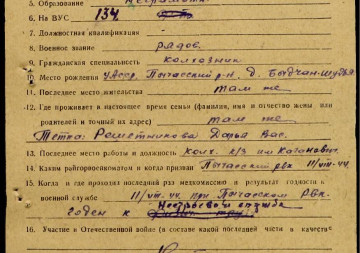 5. Образование
6. На ВУС 134
7. Должностная квалификация -
8. Военное звание рядов.
9. Гражданская специальность колхозник
10. Место рождения УАССР, Пычасский р-н, д. Богдан-шудья
11. Последнее место жительства там же
12. Где проживает в настоящее время семья (фамилия, имя и отчество жены или
родителей и точный их адрес) там же
Тетка Решетникова Дарья Вас.
13. Последнее место работы и должность колх. к/з им Каганович
14. Каким райгорвоенкоматом и когда призван Пычасский рвк 11/VIII-44.
15. Когда и где проходил последний раз медкомиссию и результат годности к
военной службе 11/VIII-44. при Пычасском рвк.
годен к нестроевой службе
16. Участие в Отечественной войне (в составе какой последней части и в качестве